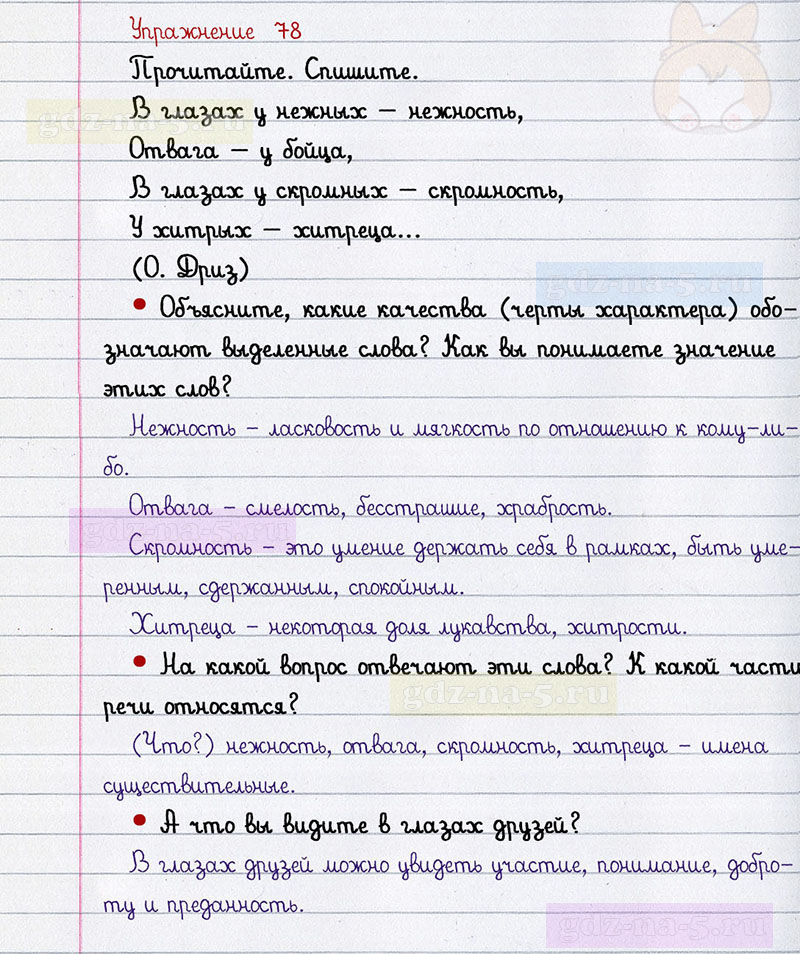 Упражнение 78
Прочитайте. Спишите.
В глазах у нежных — нежность,
Отвага — у бойца,
В глазах у скромных — скромность,
У хитрых — хитреца...
(О. Дриз)
• Объясните, какие качества (черты характера) обо-
значают выделенные слова? Как вы понимаете значение
этих слов?
Нежность – ласковость и мягкость по отношению к кому-ли-
бо.
Отвага – смелость, бесстрашие, храбрость.
Скромность – это умение держать себя в рамках, быть уме-
ренным, сдержанным, спокойным.
Хитреца – некоторая доля лукавства, хитрости.
• На какой вопрос отвечают эти слова? К какой части
речи относятся?
(Что?) нежность, отвага, скромность, хитреца – имена
существительные.
• А что вы видите в глазах друзей?
В глазах друзей можно увидеть участие, понимание, добро-
ту и преданность.
gdz-na-5.ru
gdz-na-5.ru
gdz-na-5.ru
gdz-na-5.ru
gdz-na-5.ru